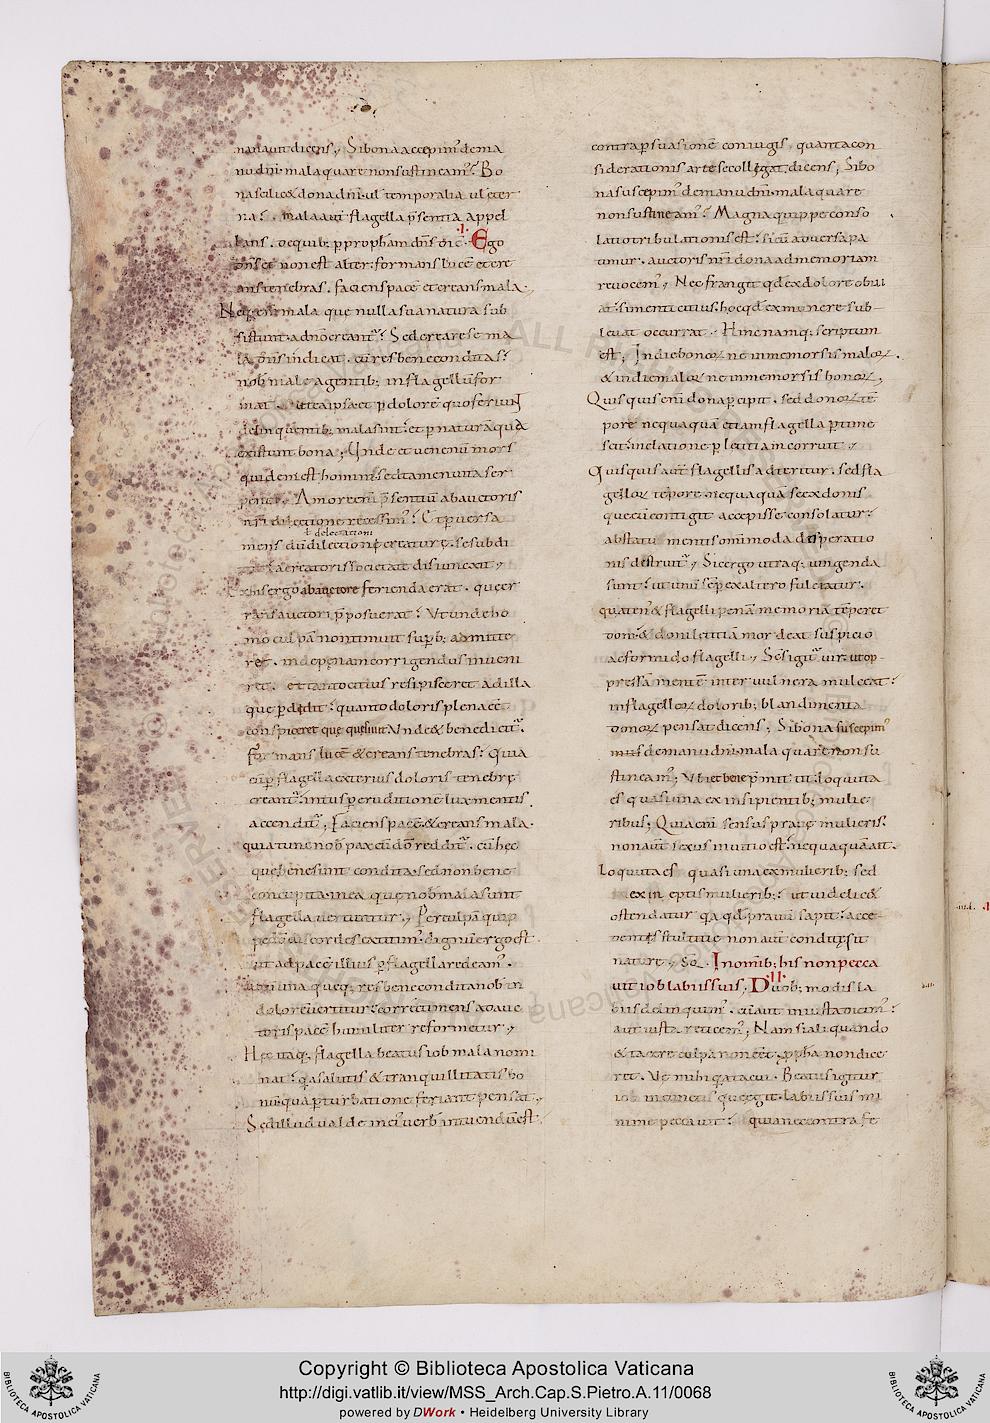 manavit dicens, Si bona accepim; de ma
nu dni. mala quare non sustineam;? Bo
na scilic& dona dni. ul temporalia. ul eter
na?. mala aut flagella psentia appel
lans. de quib; p propham dns dic. .I. Ego
dns et non est alter. formans lucē et cre
ans tenebras. faciens pacē et creans mala.
Neq; enī mala que nulla sua natura sub
sistunt. a dno creant. Sed creare se ma
la dns indicat. cū res bene conditas.
nob male agentib; in flagellū for
mat. ut ea ipsa et p dolorē quo feriunt
delinquentib; mala sint. et p naturā qua
existunt bona, Unde et venenū mors
quidem est homini. sed tamen vita ser
penti. Amore enī psentiū ab auctoris
nri dilectione recessim;. Et pversa
ł delectationi
mens dū dilectioni creature se subdi
dit. a creatoris societate disiunxit,
Ex his ergo ab auctore ferienda erat. que er
rans auctori pposuerat. Ut unde ho
mo culpā non timuit supb; admitte
re?. inde penam corrigendus inveni
ret. et tanto citius resipisceret ad illa
que pdidit. quanto doloris plena eē
conspiceret que quesivit. Unde & benedicit.
formans lucē & creans tenebras. Quia
cū p flagella exterius doloris tenebrę
creant. intus p eruditionē lux mentis
accendit, Faciens pacē. & creans mala.
quia tunc nob pax cū do reddit. cū hęc
que bene sunt condita. sed non bene
concupita. in ea que nob mala sunt
flagella vertuntur, Per culpā quip
pe do discordes extitim;. dignū ergo est
ut ad pacē illius p flagella redeam;.
ut cū una queq; res bene condita nob in
dolorē vertitur. correcti mens ad auc
toris pacē humiliter reformetur,
Hec itaq; flagella beatus iob mala nomi
nat. q̄a salutis & tranquillitatis bo
nū. qua pturbatione feriant pensat,
Sed illud valde in ei; verb intuendū est
contra psuasionē coniugis. quanta con
siderationis arte se colligat. dicens, Si bo
na suscepim; de manu dni. mala quare
non sustineam;? Magna quippe conso
latio tribulationis est. si cū adversa pa
timur. auctoris nri dona ad memoriam
revocem;, Nec frangit qd ex dolore obvi
at. si menti citius. hoc qd ex munere sub
levat occurrat. Hinc namq; scriptum
est, In die bonoꝝ ne inmemor sis maloꝝ.
& in die maloꝝ ne inmemor sis bonoꝝ,
Quisquis enī dona pcipit. sed donoꝝ tē
pore nequaquā etiam flagella ptime
scit. in elatione p letitiam corruit,
Quisquis aut flagellis adteritur. sed fla
gelloꝝ tēpore nequaquā se ex donis
que eū contigit accepisse consolatur.
a statu mentis omnimoda desperatio
nis destruit, Sic ergo utraq; iungenda
sunt. ut unū semp ex altero fulciatur.
quaten; & flagelli penā memoria tēperet
doni & doni letitiā mordeat suspicio
ac formido flagelli, Scs igit vir. ut op
pressā mentē inter vulnera mulceat.
in flagelloꝝ dolorib; blandimenta
donoꝝ pensat dicens, Si bona suscepim;
mus de manu dni. mala quare non su
stineam;, Ubi et bene pmittit. locuta
es quasi una ex insipientib; mulie
ribus, Quia enī sensus pravę mulieris.
non aut sexus in vitio est. nequaquā ait.
Locuta es quasi una ex mulierib; sed
ex insipientis mulierib;. ut videlic&
ostendatur q̄a qd pravū sapit. acce
dentis stultitię non aut conditę sit
naturę, SQ. In omib; his non pecca
vit iob labiis suis, .II. Duob; modis la
biis delinquim;. cū aut iniusta dicim;.
aut iusta reticem;, Nam si aliquando
& tacere culpa non eēt. ppha non dice
ret. Ve mihi q̄a tacui. Beatus igitur
iob in cunctis que egit. labiis suis mi
nime peccavit. quia nec contra fe
Copyright © Biblioteca Apostolica Vaticana
http://digi.vatlib.it/view/MSS_Arch.Cap.S.Pietro.A.11/0068
powered by DWork • Heidelberg University Library
BIBLIOTECA APOSTOLICA VATICANA
BIBLIOTECA APOSTOLICA VATICANA